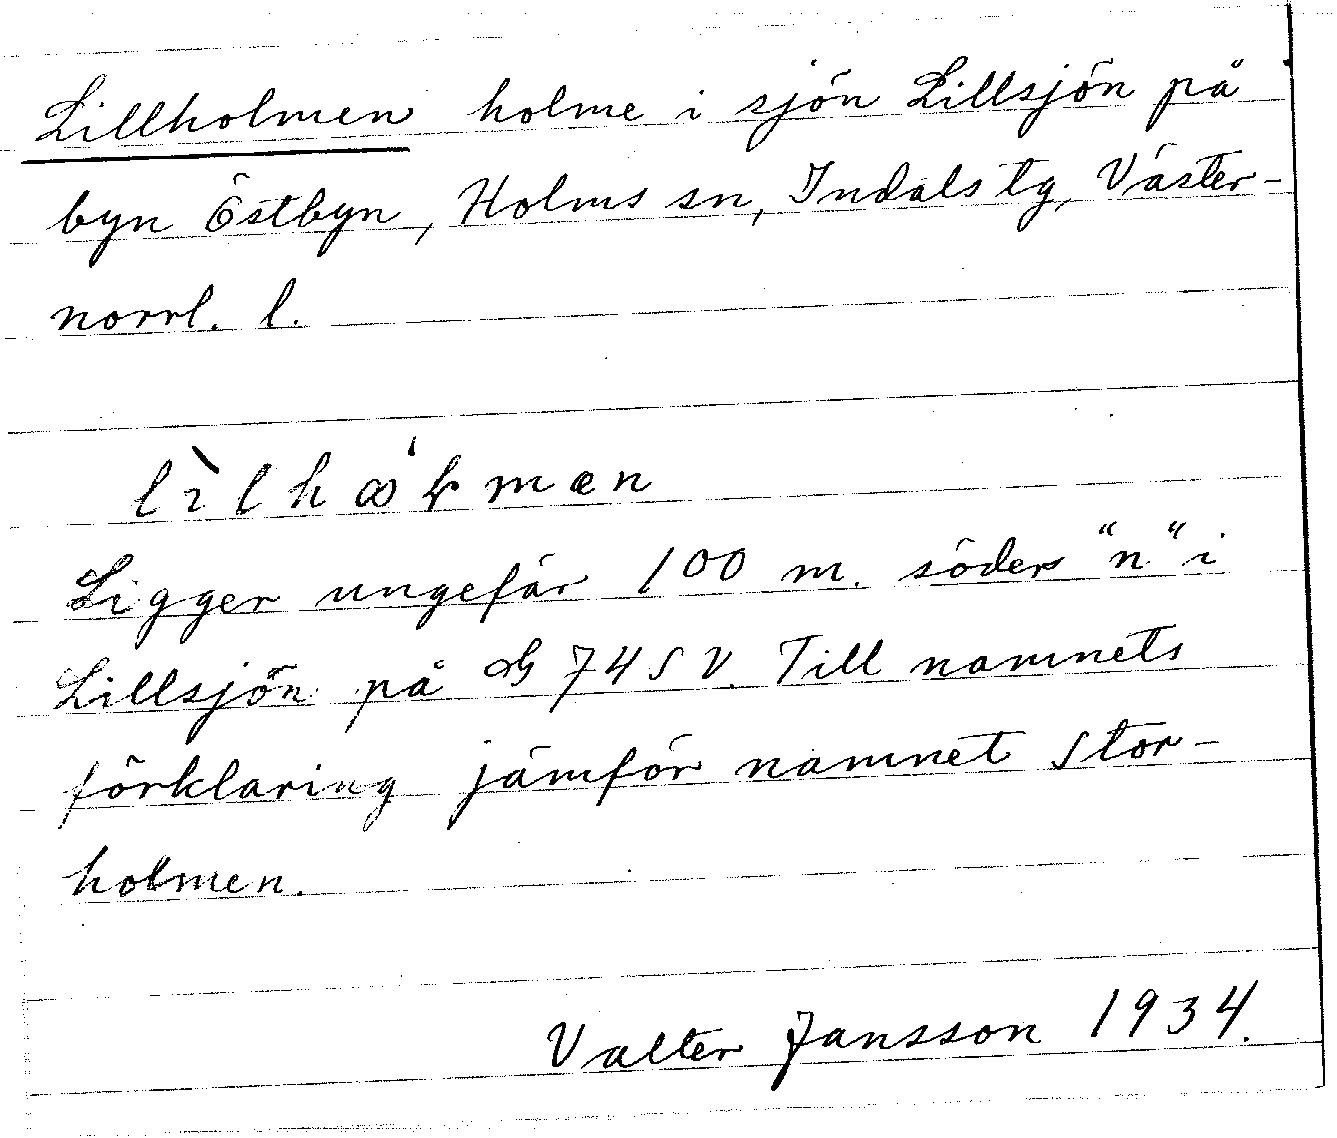 Lillholmen holme i sjön Lillsjön på
byn Östbyn, Holms sn, Indals tg, Väster-
norrl. l.
Ligger ungefär 100 m. söder "n" i
Lillsjön på G 74 S V. Till namnets
förklaring jämför namnet Stor-
holmen.
Valter Jansson 1934.